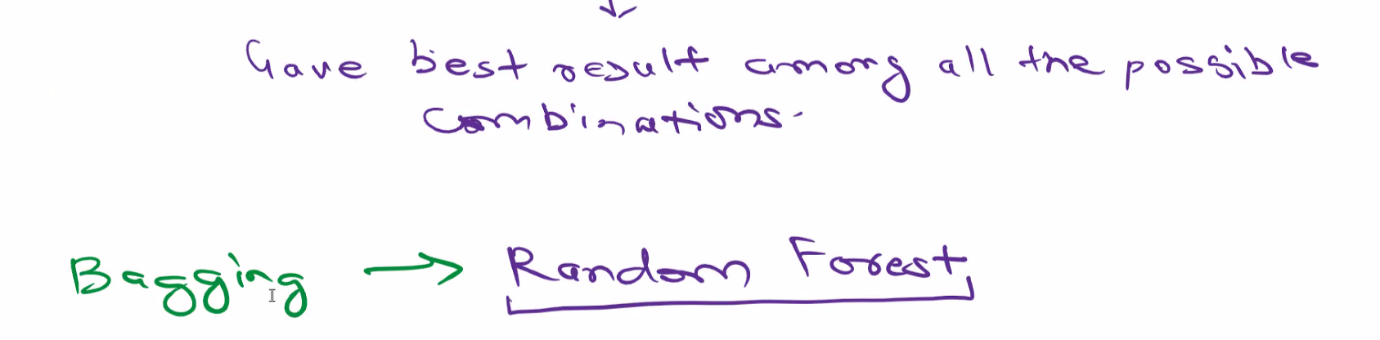 Gave best result among all the possible
combinations.
Bagging → Random Forest